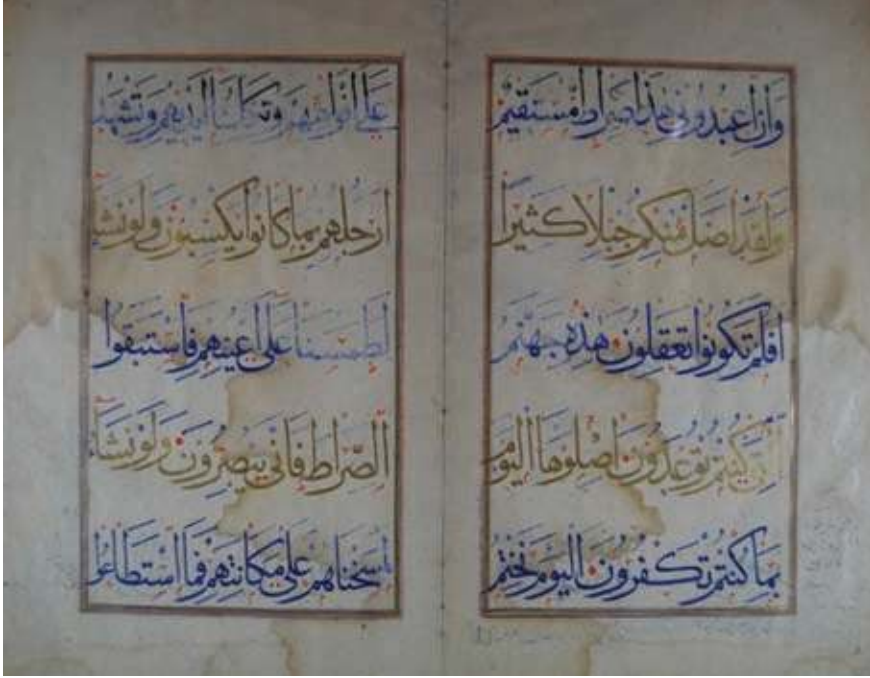 وَاَنِ اعْبُدُونِي هَذَا صِرَاطٌ مُسْتَقِيمٌ
وَلَقَدْ اَضَلَّ مِنْكُمْ جِبِلًّا كَثِيرًا
اَفَلَمْ تَكُونُوا تَعْقِلُونَ هَذِهِ جَهَنَّمُ
الَّتِي كُنْتُمْ تُوعَدُونَ اصْلَوْهَا الْيَوْمَ
بِمَا كُنْتُمْ تَكْفُرُونَ الْيَوْمَ نَخْتِمُ
عَلَى اَفْوَاهِهِمْ وَتُكَلِّمُنَا اَيْدِيهِمْ وَتَشْهَدُ
اَرْجُلُهُمْ بِمَا كَانُوا يَكْسِبُونَ وَلَوْ نَشَاءُ
لَطَمَسْنَا عَلَى اَعْيُنِهِمْ فَاسْتَبَقُوا
الصِّرَاطَ فَاَنَّى يُبْصِرُونَ وَلَوْ نَشَاءُ
لَمَسَخْنَاهُمْ عَلَى مَكَانَتِهِمْ فَمَا اسْتَطَاعُوا